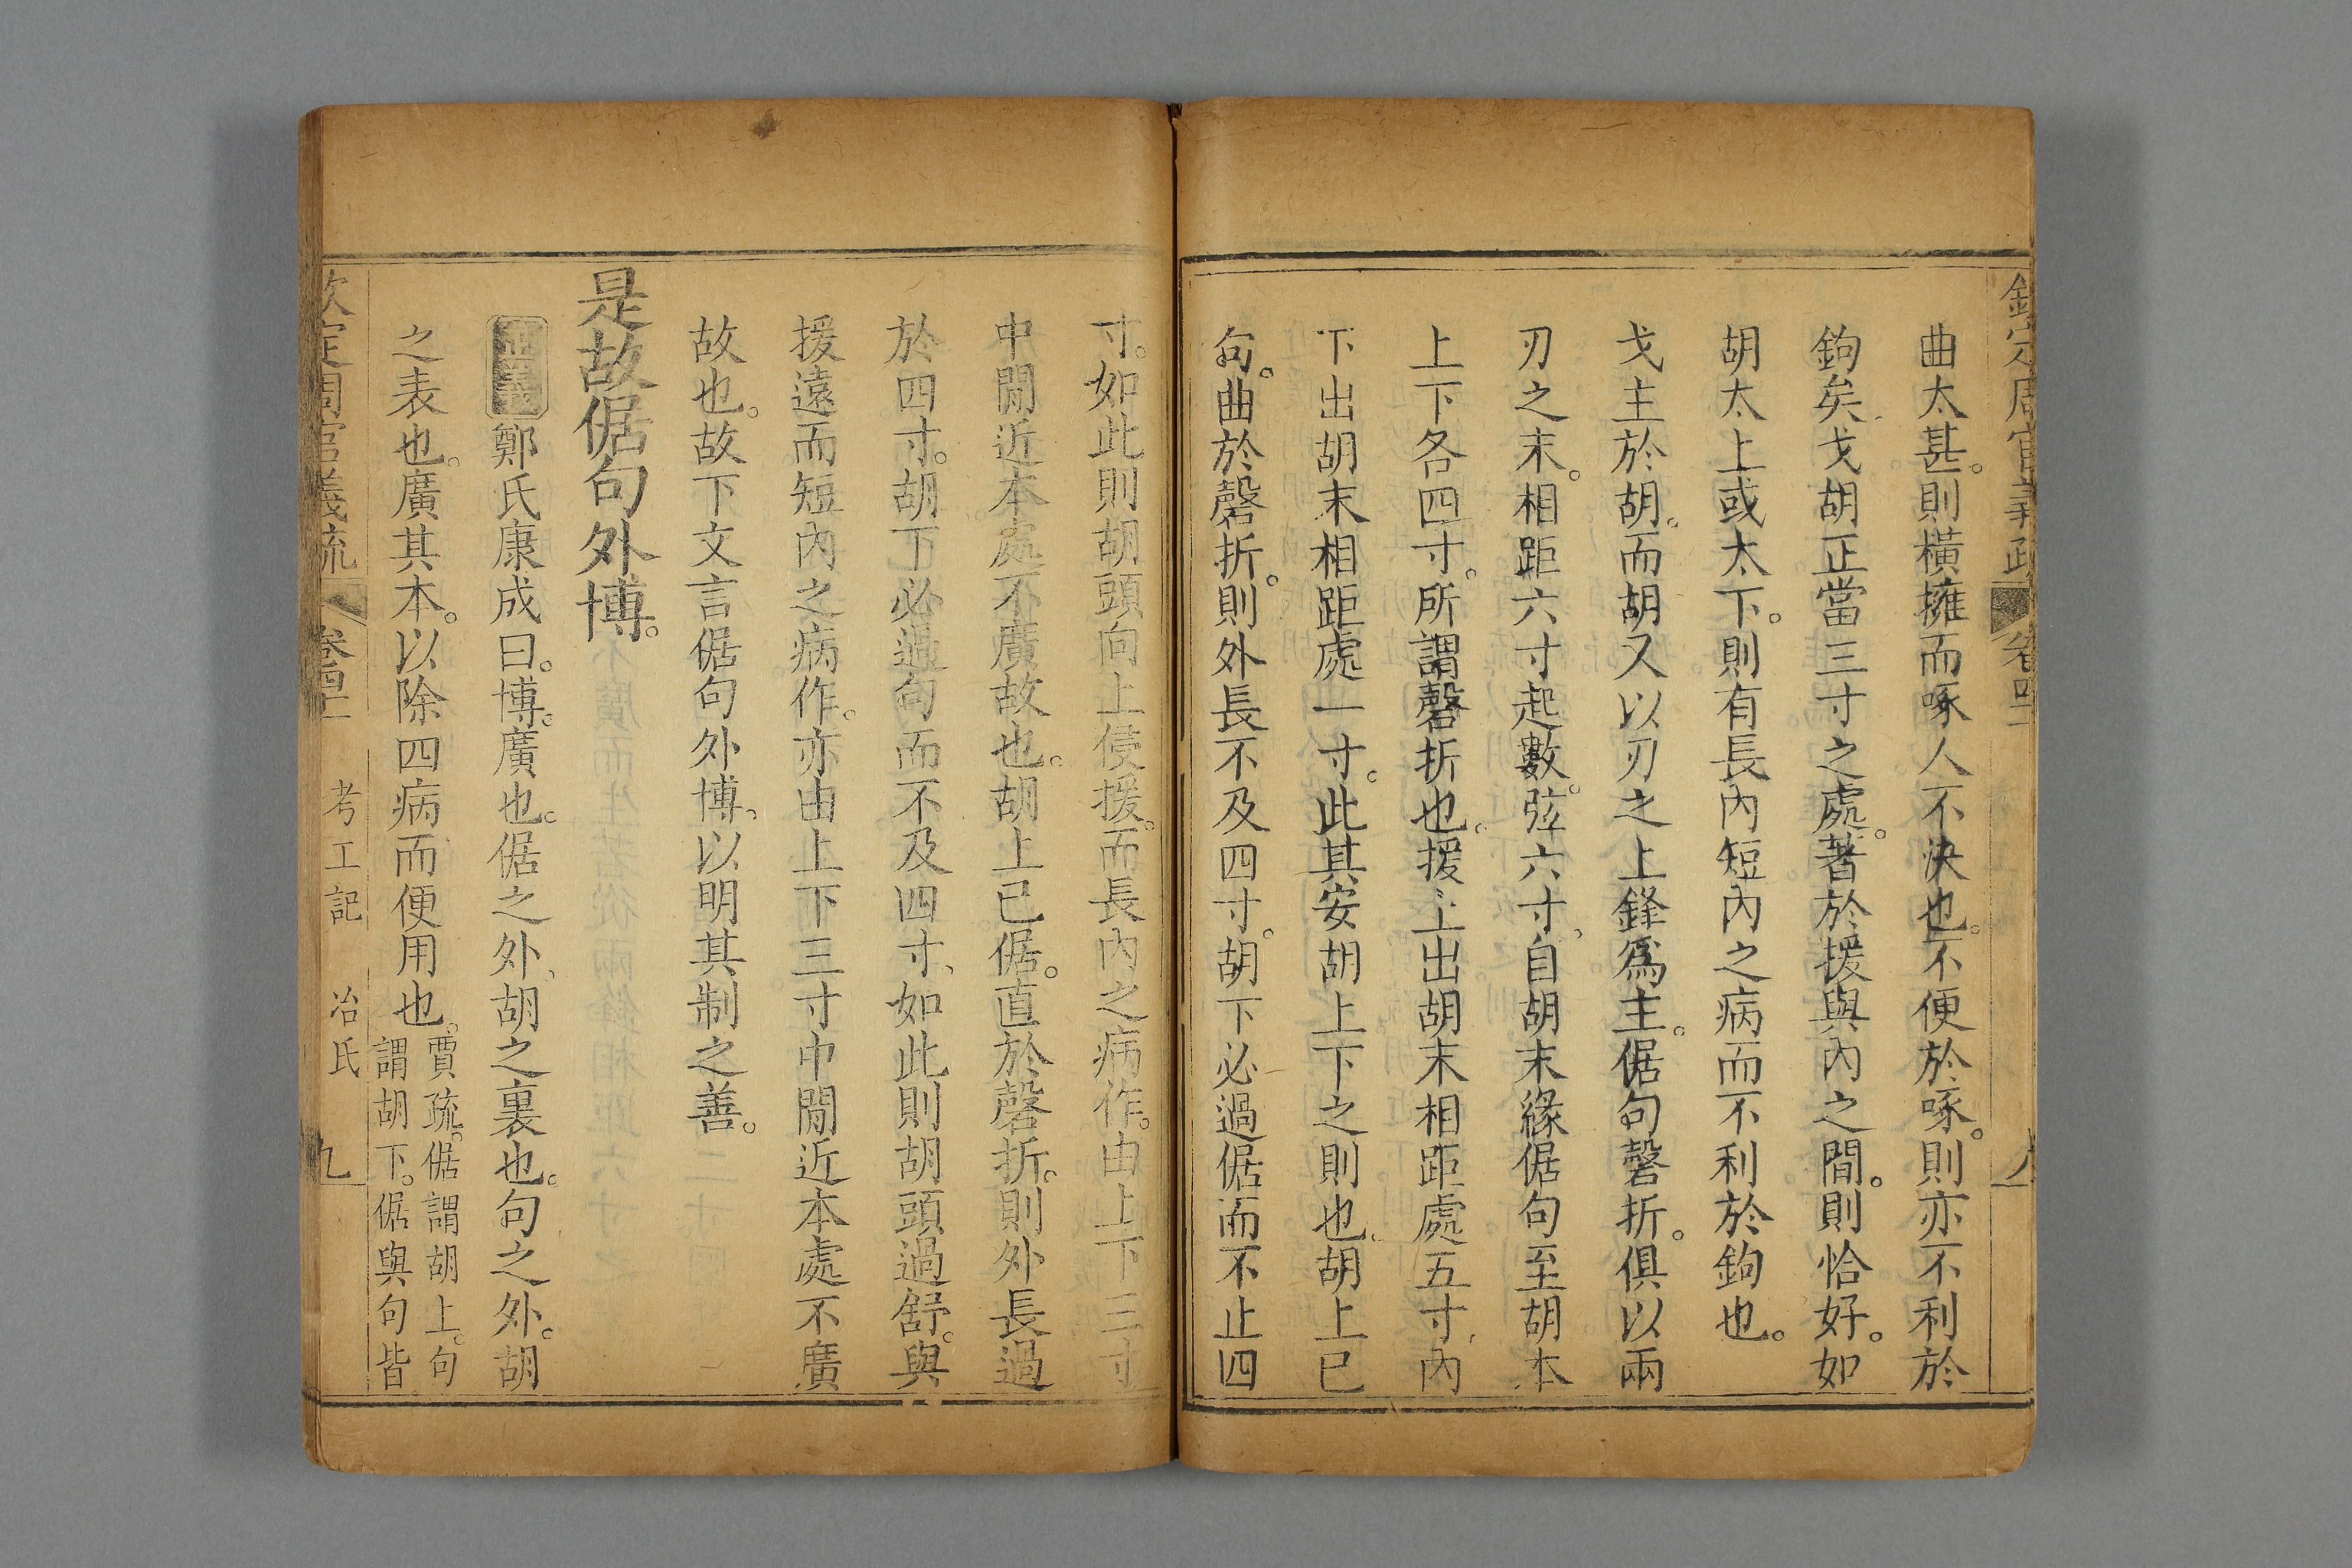 欽定周官義疏 卷四十一 八
曲太甚。則橫擁而啄人不決也。不便於啄。則亦不利於
鉤矣。戈胡正當三寸之處。著於援與內之間。則恰好。如
胡太上或太下。則有長內短內之病而不利於鉤也。
戈主於胡。而胡又以刃之上鋒爲主。倨句磬折。俱以兩
刃之末。相距六寸起數。弦六寸、自胡末緣倨句至胡本
上下各四寸。所謂磬折也。援上出胡末相距處五寸、內
下出胡末相距處一寸。此其安胡上下之則也。胡上已
句。曲於磬折。則外長不及四寸。胡下必過倨而不止四
寸。如此則胡頭向上侵援。而長內之病作。由上下三寸
中閒近本處不廣故也。胡上已倨。直於磬折。則外長過
於四寸。胡下必過句而不及四寸、如此則胡頭過舒。與
援遠而短內之病作。亦由上下三寸中閒近本處不廣
故也。故下文言倨句外博、以明其制之善。
是故倨句外博。
正義鄭氏康成曰。博。廣也。倨之外、胡之裏也。句之外。胡
之表也。廣其本。以除四病而便用也。
賈疏。倨謂胡上。句
謂胡下。倨與句皆
欽定周官義疏 卷四十一 考工記 冶氏 九